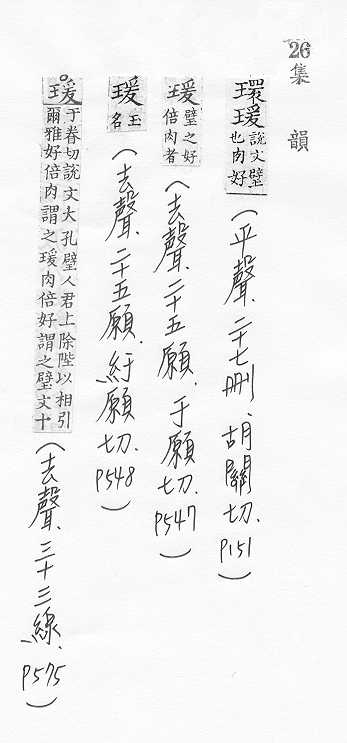 26集韻
環瑗說文璧也肉好(平聲.二十七刪、胡關切.P151)
瑗璧之好倍肉者(去聲.二十五願.于願切.P547)
瑗玉名(去聲.二十五願.紆願切.P548)
瑗于眷切說文大孔璧人君上除陛以相引爾雅好倍肉謂之瑗肉倍好謂之璧文十(去聲.三十三線.P575)